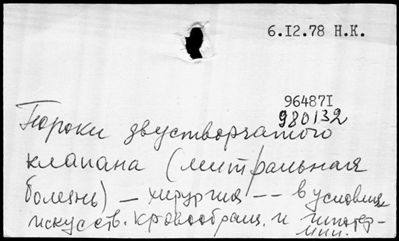 6.I2.78 Н.К.
96487I
980132
Пороки двустворчатого
клапана (митральная
болезнь) — хирургия -- в условиях
искусств. кровообращ. и гипотер-
мии.